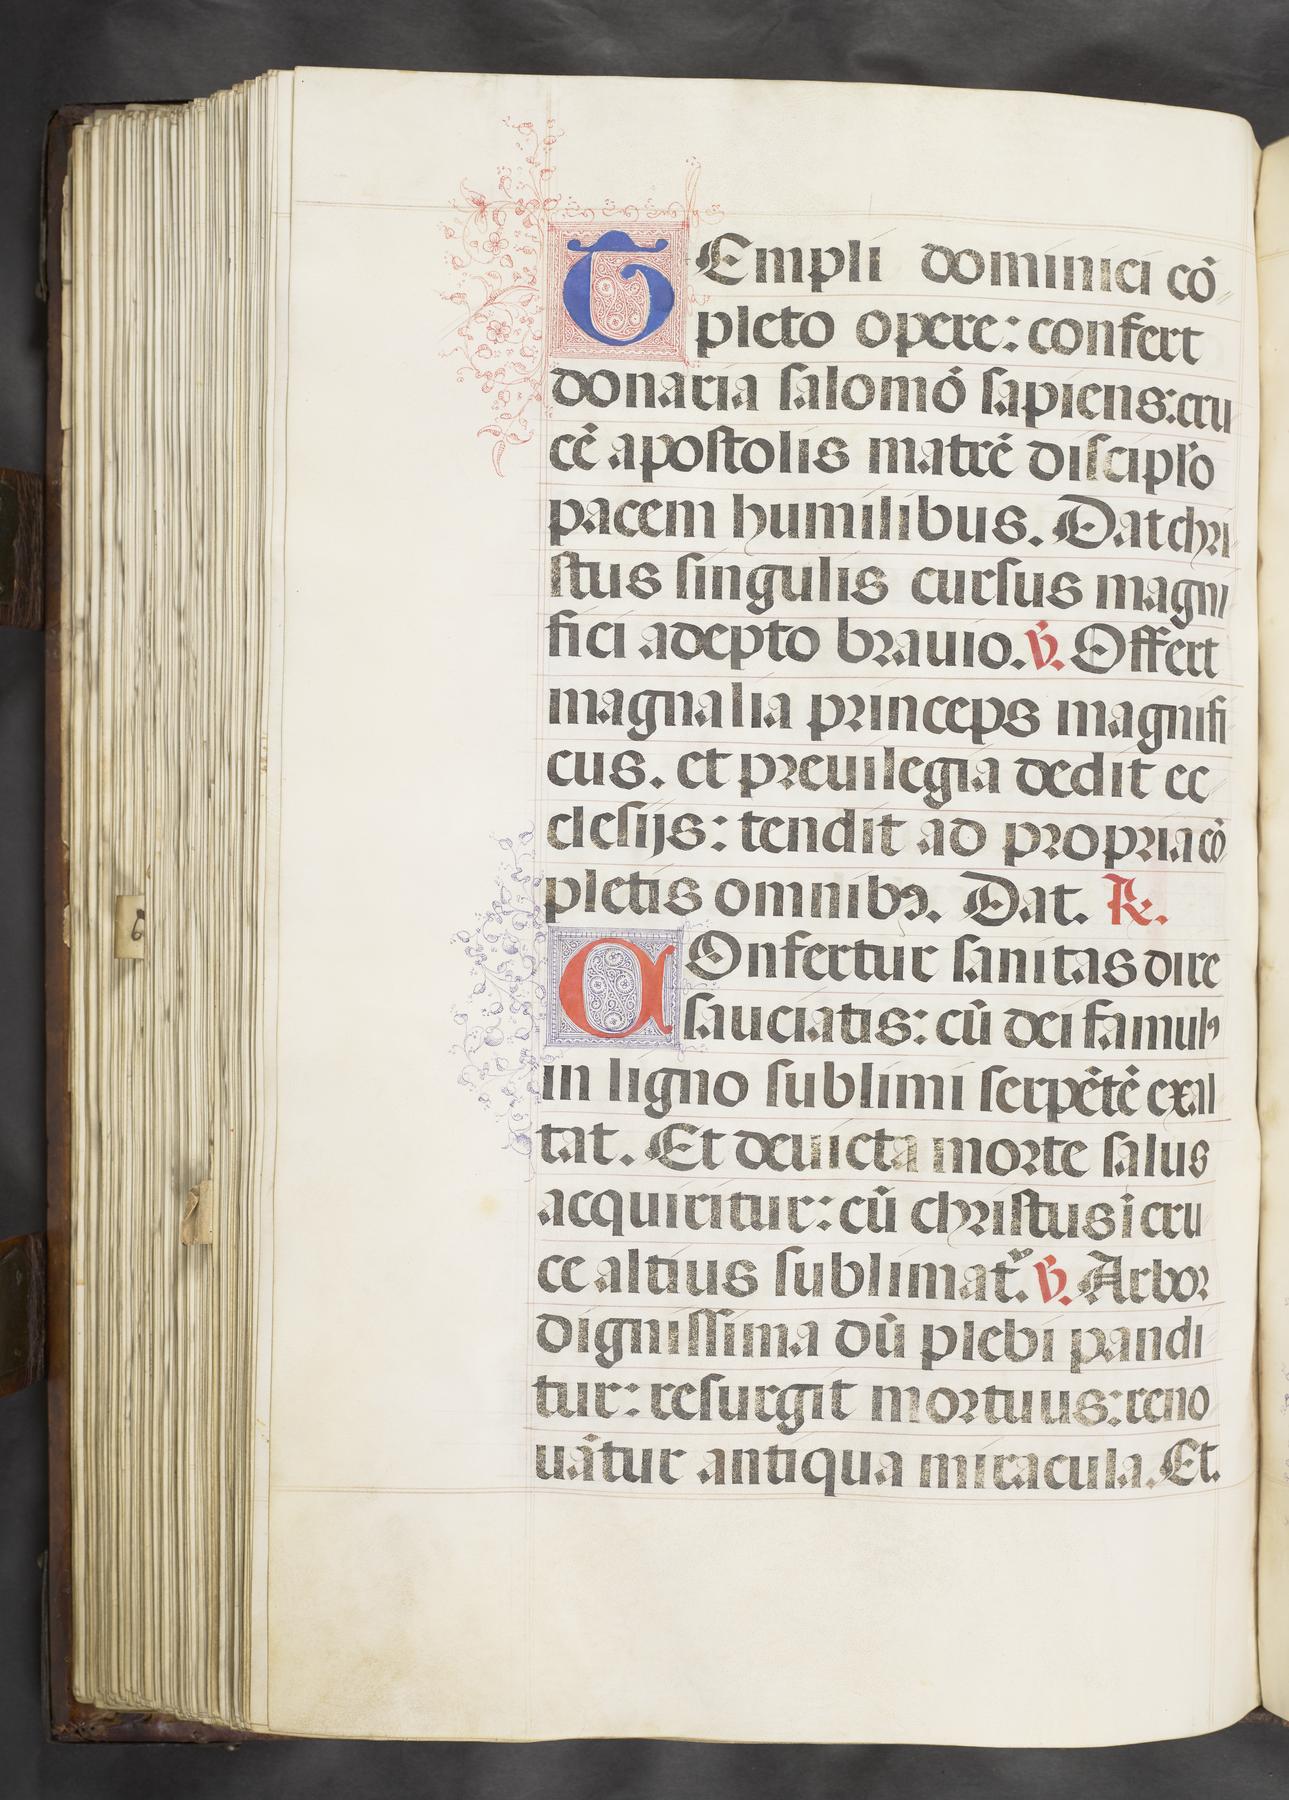 TEmpli dominici cō
pleto opere: confert
donaria salomō sapiens: cru
cē apostolis matrē discipl'o
pacem humilibus. Dat chri
stus singulis cursus magni
fici adepto brauio. V. Offert
magnalia princeps magnifi
cus. et preuilegia dedit ec
clesijs: tendit ad propria cō
pletis omnibꝫ. Dat. R.
COnfertur sanitas dire
sauciatis: cū dei famulꝰ
in ligno sublimi serpētē exal
tat. Et deuicta morte salus
acquiritur: cū christus ī cru
ce altius sublimat᷑. V. Arbor
dignissima dū plebi pandi
tur: resurgit mortuus: reno
uātur antiqua miracula. Et.
6